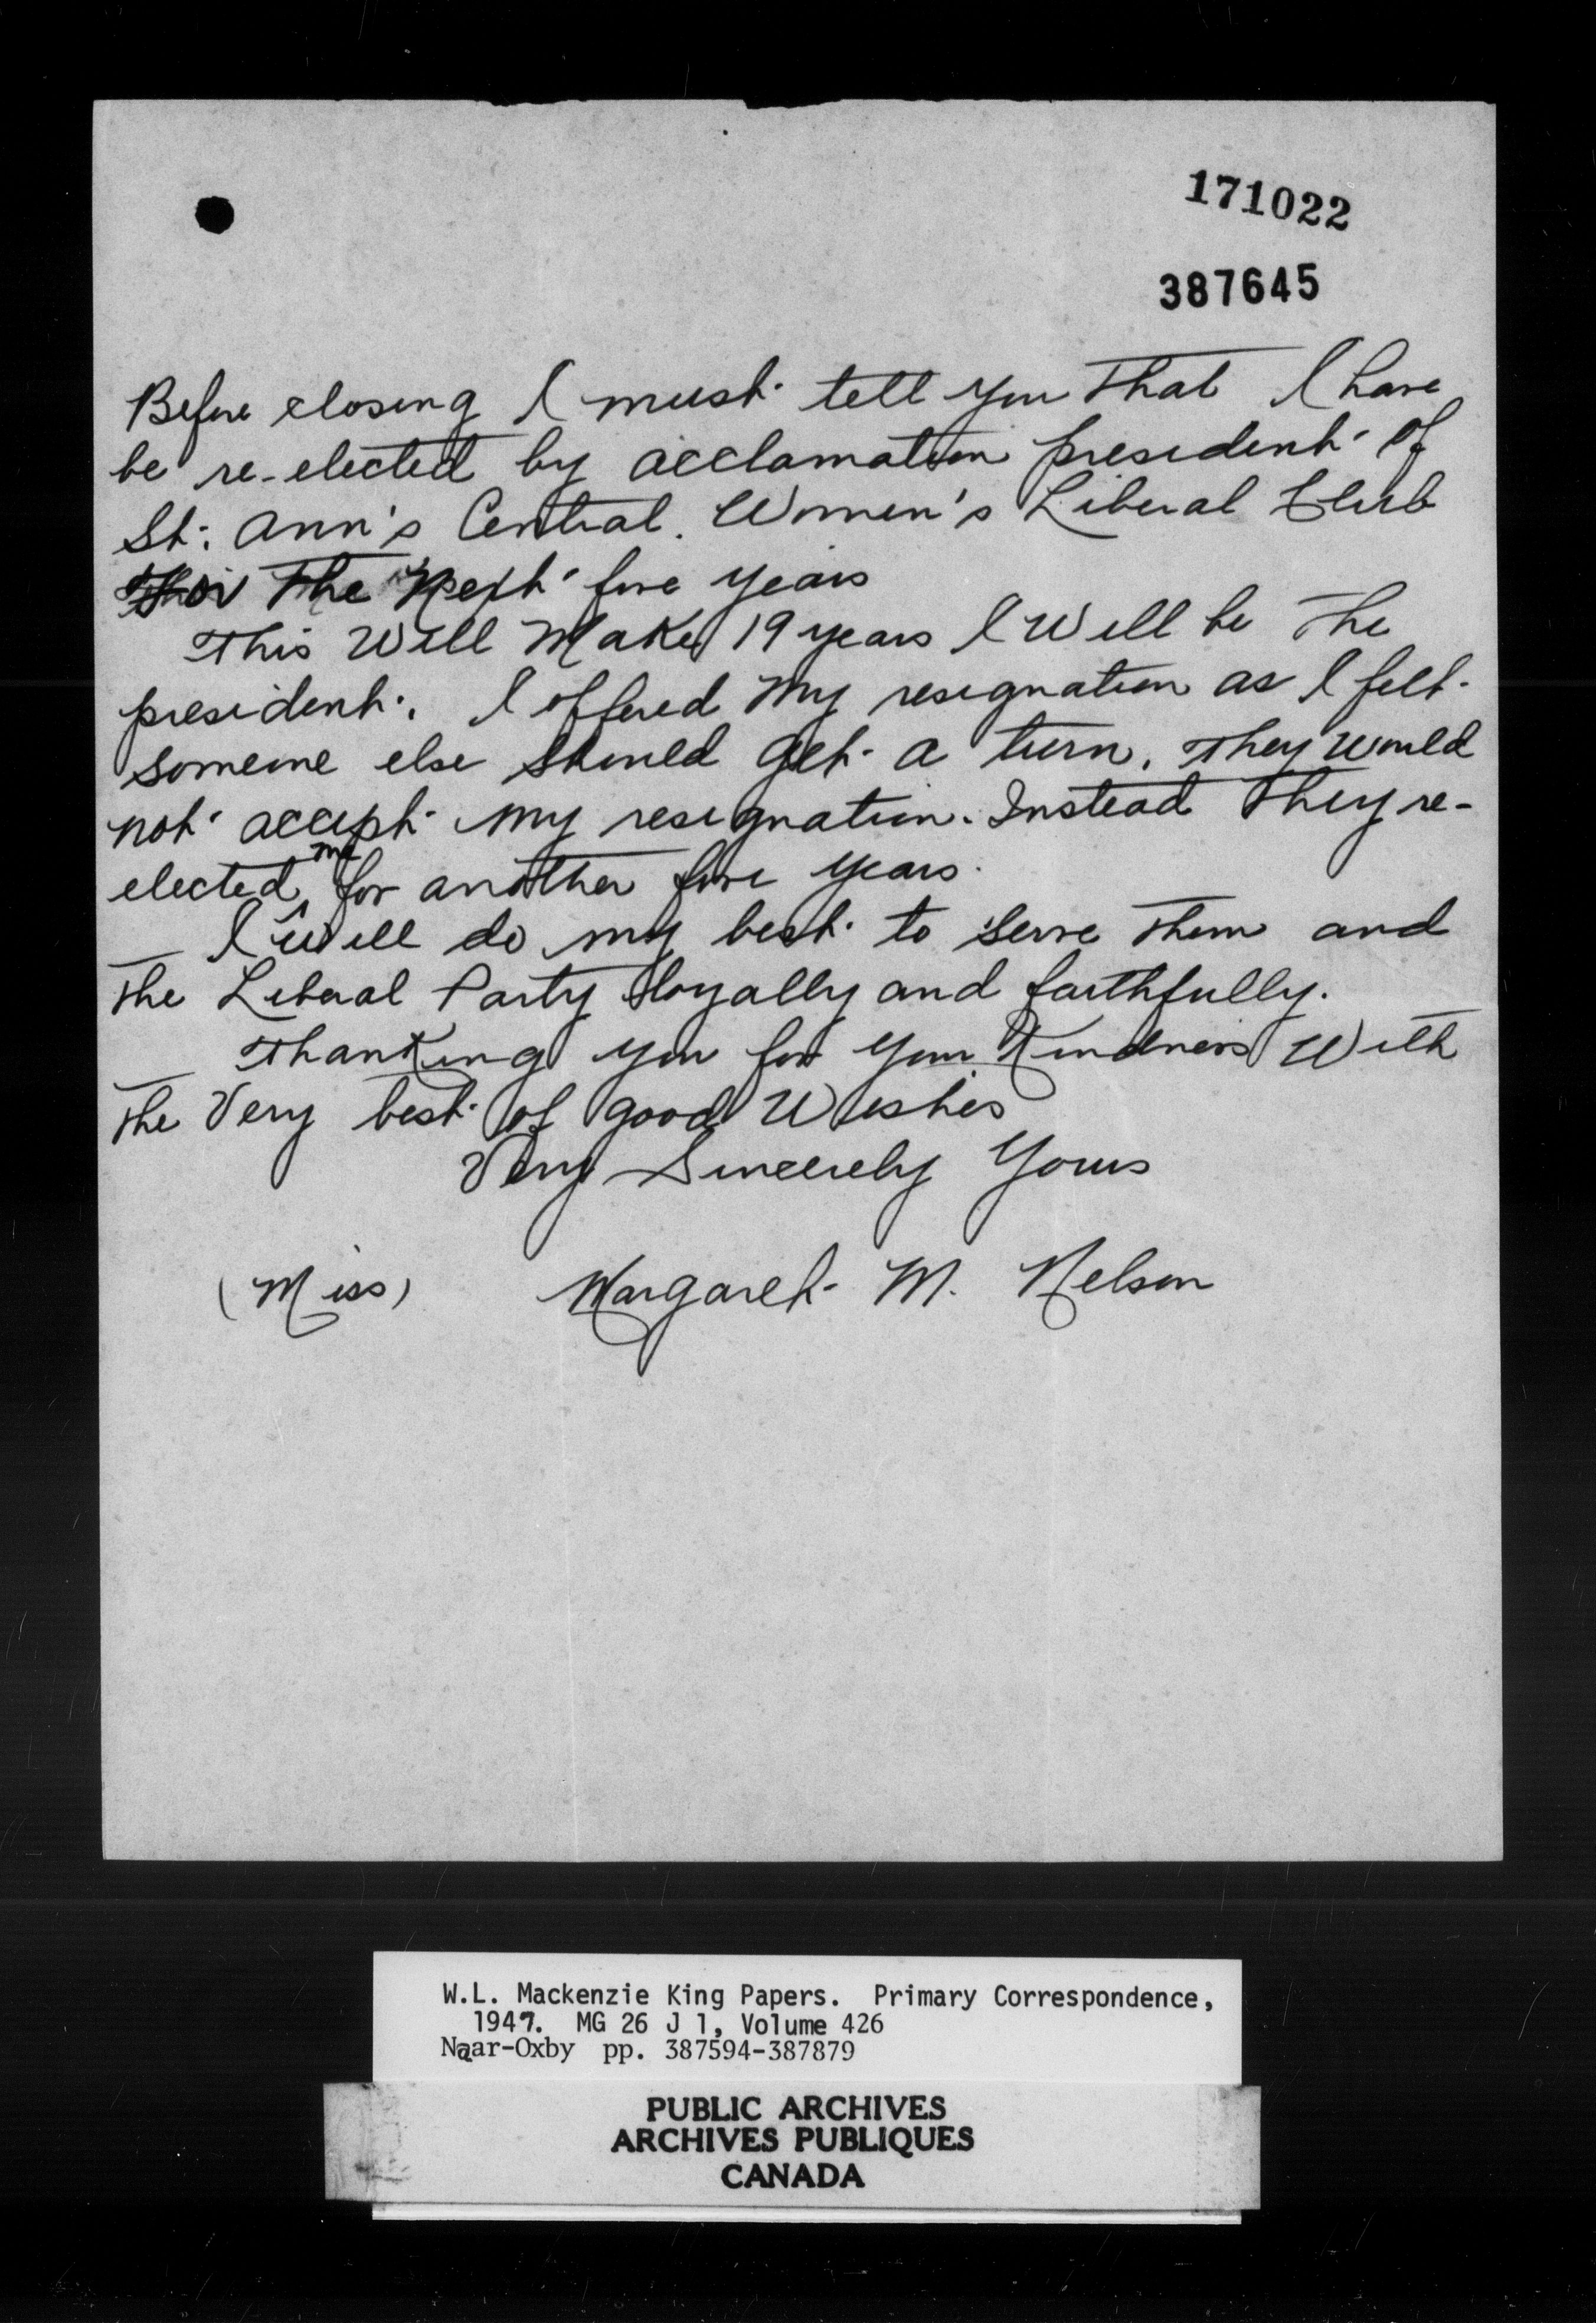 171022
387645
Before closing I must tell you that I have
be re-elected by acclamation president of
St. Ann's Central Women's Liberal Club
for the next five years
This will make 19 years I will be the
president. I offered my resignation as I felt
someone else should get a turn. They would
not accept my resignation. Instead they re-
elected me for another five years.
I will do my best to serve them and
the Liberal Party loyally and faithfully.
Thanking you for your kindness with
the very best of good wishes
Very Sincerely Yours
(Miss) Margaret M. Nelson
W.L. Mackenzie King Papers. Primary Correspondence,
1947. MG 26 J 1, Volume 426
Naar-Oxby pp. 387594-387879
PUBLIC ARCHIVES
ARCHIVES PUBLIQUES
CANADA